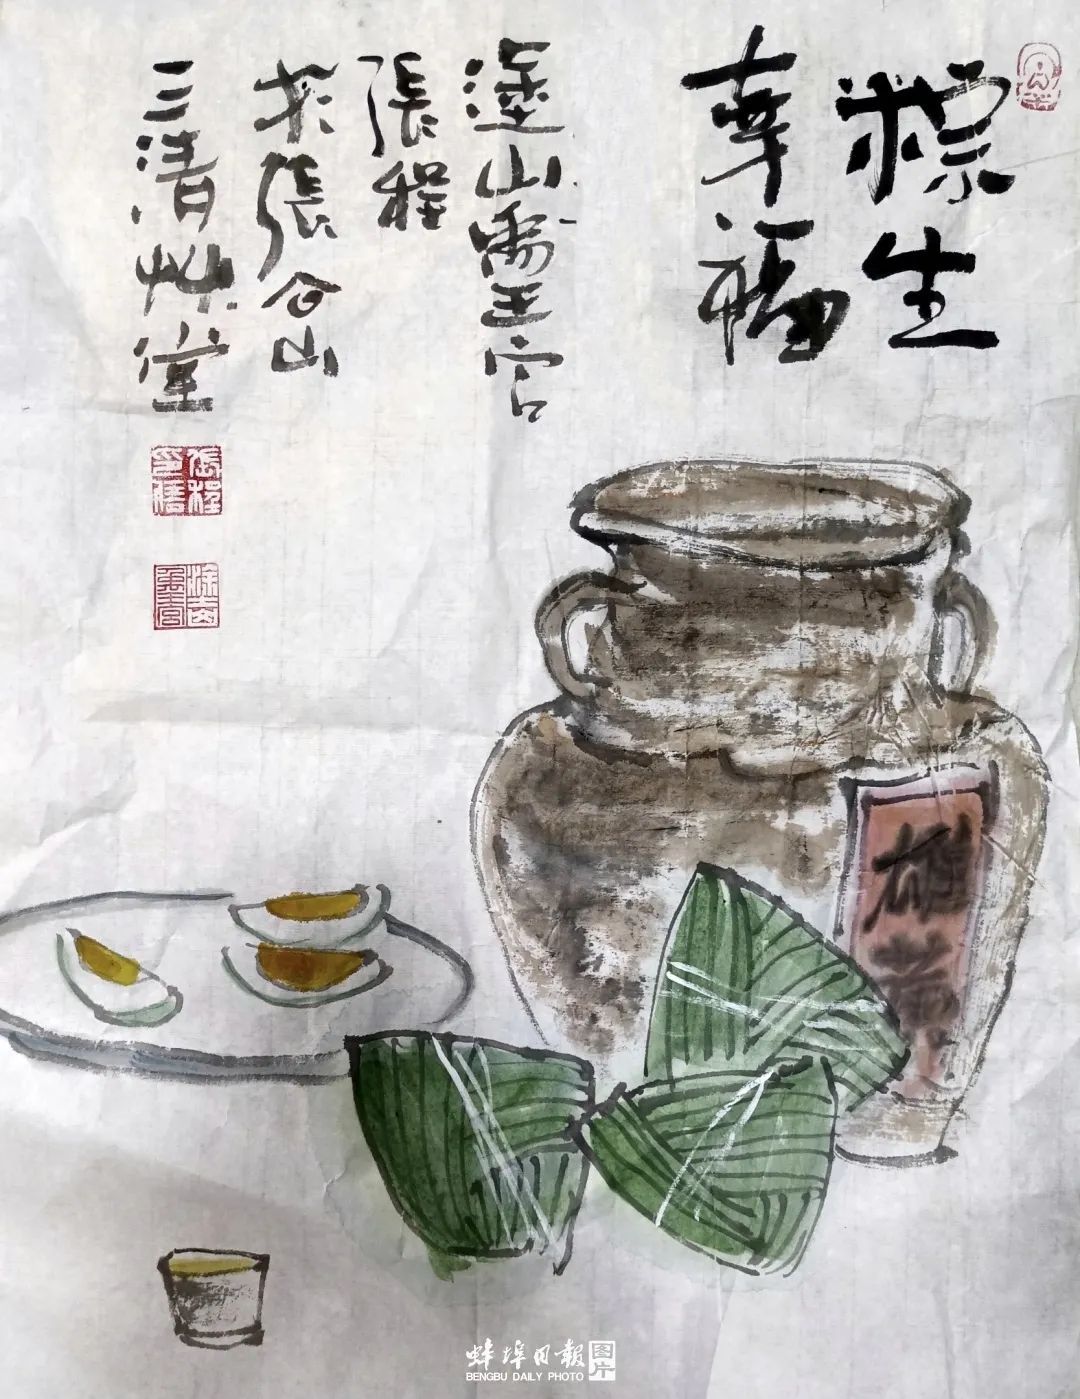 粽生
幸福
塗山禹王宫
張程
於張公山
三清艸堂
雄黄
蚌埠日報 图片
BENGBU DAILY PHOTO